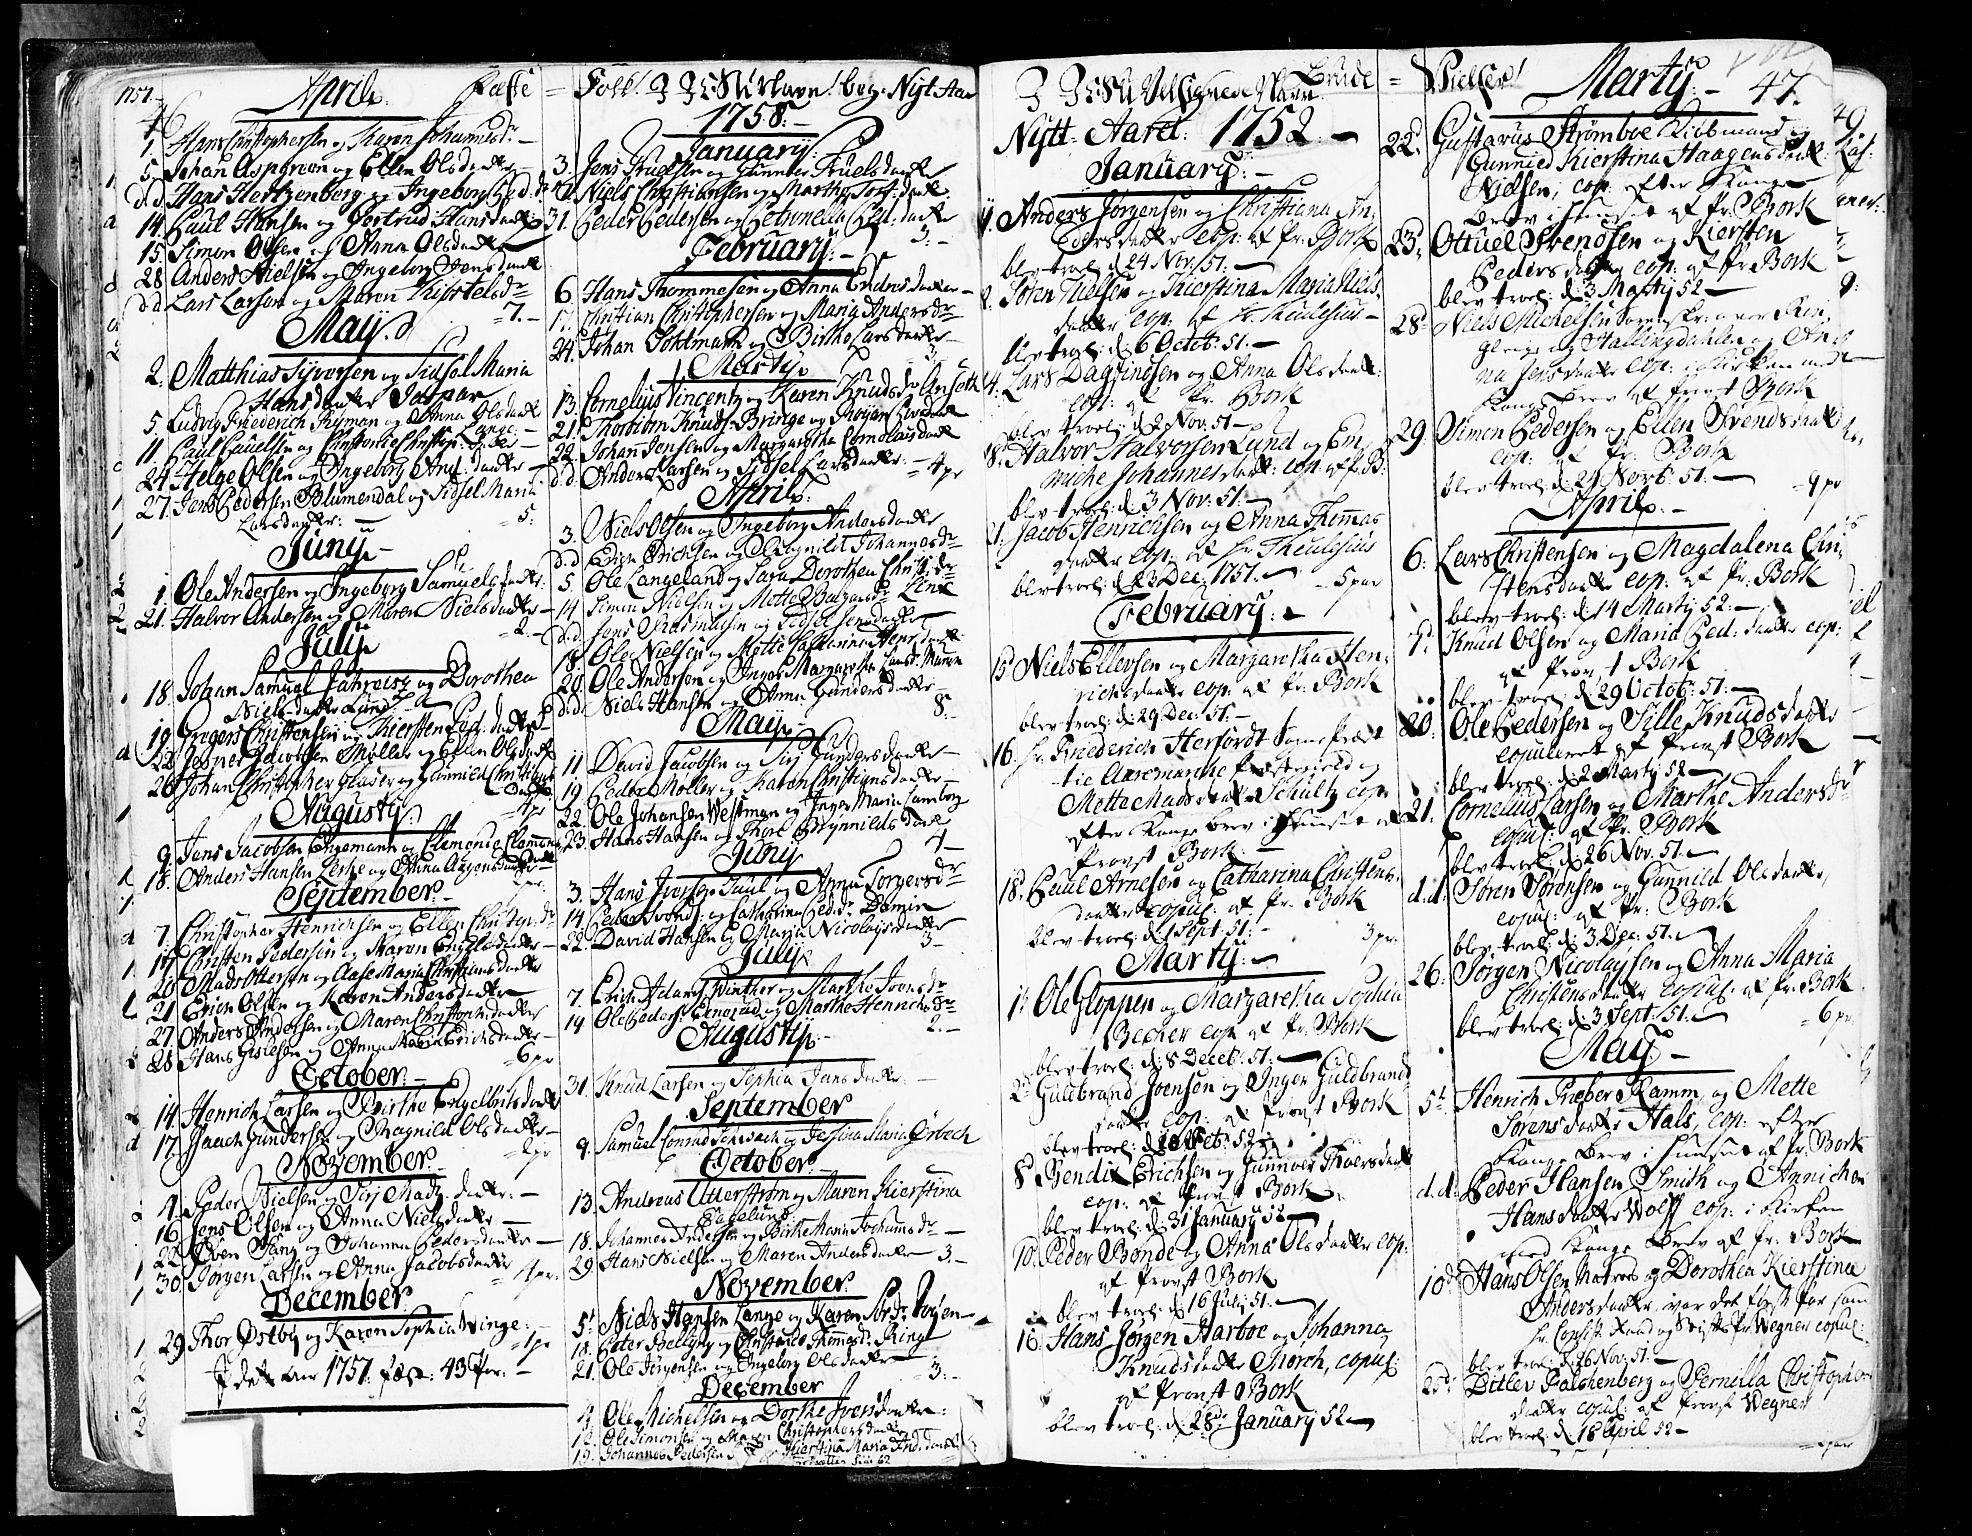 1757.
46
April. Fæste
1. Hans Christophersen og Karen Johannisdr
5. Johan Aspgreen og Ellen Olsdaatter
d.d Hans Hertzenberg og Ingeborg Ped:
14. Paul Hansen og Giertrud Hansdaatter
15. Simon Olsen og Anna Olsdaatter
28 Anders Nielsen og Ingeborg Jensdaatt
d.d Lars Larsen og Maren
= 7. –
May.
2. Matthias Syversen og Sidsel Maria
Hansdaatter
5. Ludvig Friederich Ryman og Anna Olsdaatt
11. Paul Paulsen og
24. Helge Olsen og Ingeborg And: daatter
27. Jens Pedersen Blumendal og Sidsel Maria
Larsdaatter: = 5:
Juny –
1. Ole Andersen og Ingeborg Samuelsdaatter
21. Halvor Andersen og Maren Nielsdaatter –
= 2. –
July
18. Johan Samuel og Dorothea
Nielsdaatter Lund
19. Gregers Christensen og Kiersten Ped: daatter
22 Jesper Jacobsen Møller og Ellen Olsdaatt
26 Johan Christopher Glaser og Gunnild Christians
daatter
4 pr
Augusty.
9. Jens Jacobsen Engemann og Clemende Clemens
18. Anders Hansen og Anna
September.
7. Christopher Henrichsen og Ellen Christop: dr
17. Christen Pedersen og Maren Engelsdaatter –
20. Mads Ottersen og Aase Maria Christians daatter
21 Erich Olsen og Karen Andersdaatter
27. Anders Andersen og Maren Christophersdaatter
28 Hans Gislesen og Anna Maria Erichsdaatter –
= 6 pr
October. –
14. Henrich Larsen og Birthe Engelbritsdaatt
17. Isaach Gundersen og Ragnild Olsdaatter –
= 2 pr
November –
4. Peder Nielsen og Siri Madz: daatter: –
16 Jens Olsen og Anna Nielsdaatter –
22 Sven Fang og Johanna Pedersdaatter –
30. Jørgen Larsen og Anna Jacobsdaatter
= 4 pr:
December.
29. Thor Østby og Karen Sophia Winge: –
= 1 pr
I dette Aar 1757. fæst: 43 Par: –
= Folk! I JESU Navn! beg: Nyt Aar
1758. –
January. –
3. Jens Truelsen og Gunner Truelsdaatter
Niels Christiansen og Marthe Torf: daatt
31. Peder Pedersen og Petronella Ped: daatter
3: –
February: –
6. Hans Thommesen og Anna Endersdaatter –
17. Christian Christophersen og Maria Andersdr
24. Johan Pohlmann og Birthe Larsdaatter –
3.
Marty.
13. Cornelius Vincentz og Karen Knudsdr Ansett
21. Thorbiørn Knuds: Bringe og
22. Johann Jensen og Margaretha Corneliusdaatt
d:d: Anders Larsen og Sidsel Larsdaatter: – 4 pr
April. –
3. Niels Olsen og Ingeborg Andersdaatter
d:d Erich Erichsen og Ragnild Johannesdr
5. Ole Langeland og Sara Dorothea Christ: dr
14 Simen Nielsen og Mette
d.d. Jens Rasmusen og Sidsel Jensdaatter
18. Ole Nielsen og Mette Catharina Hans daatt
20. Ole Andersen og Inger Margaretha Larsd: Munch
d:d: Niels Hansen og Anna Gundersdaatter –
8: –
May. –
11 David Jacobsen og Siri Gundersdaatter –
19. Peder Møller og Karen Christiansdaatter –
22. Ole Johansen Westman og Inger Maria Lamberg
23. Hans Hansen og Thore Brynnildsdaatt
4 –
Juny
3. Hans Iversen Juul og Anna Torgersdr
14. Peder Svends: og Cathrina Ped: dr Damin
22. David Hansen og Maria Nicolaysdaatter
3 –
July.
7. Erich Adams: Winther og Marthe Svensdr
14 Ole Peders: Lengrud og Marthe Henrichsdr
2: –
Augusty. –
31. Knud Larsen og Sophia Jansdaatter: –
September
9. Samuel Conrad Schwach og Jessina Maria Ørbech
October: –
13. Andreas Utterstrøm og Maren Kierstina
Eggelund
18. Johannes Andersen og Birthe Maria Jochumsdr –
29. Hans Nielsen og Maren Andersdaatter – 3. –
November.
5. Niels Hansen Lange og Karen Sørdr Bøyen –
18. Peter og Christina Thommasdr Ring
21. Ole Jørgensen og Ingeborg Olsdaatter
3: –
December
4. Ole Michelsen og Dorthe Iversdaatter:
12. Ole Simonsen og Maren Christophersdaatter
19. Johannes Pedersen og Kierstina Maria And: daatt
fortsættes Side 62
I JESU Velsignede Navn. Brude = Vielser!
Nytt Aaret 1752. –
January. –
4. Anders Jørgensen og Christiana An,
dersdaatter cop: af Pr: Bork
blev trol: d 24 Nov: 51. –
Søren Nielsen og Kierstina Maria Niels,
daatter cop: af Hr. Theulesius –
blev trol: d: 6 Octob: 51. –
14. Lars Dagfindsen og Anna Olsdaatt:
cop: af Pr. Bork
blev trol: d 2 Nov: 51 –
18. Halvor Halvorsen Lund og Em,
miche Johannesdaatt: cop: af P: B:
blev trol: d. 3 Nov: 51: –
21. Jacob Henrichsen og Anna Thommas
daatter cop: af Hr. Theulesius
blev trol: d 23 Dec: 1751. – 5 par
February: –
15 Niels Ellevsen og Margaretha Hen,
richsdaatter cop: af Pr: Bork
blev trol: d: 29 Dec: 51. –
16. Hr. Friederich Herfordt Sogneprest
til Aaremarche Præstegield og
Mette Madsdaatter Schultz cop:
efter Konge brev i Huuset af
Provst Bork. –
18. Paul Arnesen og Catharina Christens,
daatter copul: af Pr. Bork
blev trol: d. 1 Sept: 51: – 3 pr:
Marty: –
1. Ole Gloppen og Margaretha Sophia
Becher cop: af Pr: Bork
blev trol: d: 8 Deceb: 51. –
2. Guldbrand Joensen og Inger Guldbrands
daatter cop: af Provst Bork
blev trol: d 10 Feb: 52 –
8. Bendix Erichsen og Gunnor Thoersdaatt
cop: af Provst Bork.
blev trol: d: 31 January 52 –
10. Peder Bonde og Anna Olsdaatter cop:
af Provst Bork
blev trol: d: 16 July 51. –
16. Hans Jørgen Harboe og Johanna
Knudsdaatter Morch, copul:
af Provst Bork
blev trol: d: 28de January 52 –
Marty. – 47.
22d. Gustavus Strømboe Kiøbmand og
Gunnild Kierstina Haagensdaatt:
Nielsen, cop: efter Konge
brev i huuset af Pr. Bork
23d. Ottuel Svendsen og Kiersten
Pedersdaatter cop: af Pr Bork
blev trol: d: 3 Marty 52 –
28d Niels Michelsen Sorenskr: over Rin,
gerige og Hallingdahlen og An,
na Jensdaatter cop: i kirken med
Konge brev af Provst Bork
29. Simen Pedersen og Ellen Svendsdaatt
cop: af Pr: Bork
blev trol: d: 24 Novb: 51. – = 9 pr
April. –
6. Lars Christensen og Magdalena Chri,
stensdaatter cop: af Pr. Bork
blev trol: d: 14 Marty 52: –
7. Knud Olsen og Maria Ped: daatter cop:
af Provst Bork
blev trol: d 29 Octob: 51. –
20. Ole Pedersen og Sille Knudsdaatter
copuleret af Provst Bork
blev trol: d 2 Marty 52 –
21. Cornelius Larsen og Marthe Andersdr
copul: af Pr. Bork
blev trol: d 26 Nov: 51. –
d.d: Søren Sørensen og Gunnild Olsdaatter,
copul: af Pr: Bork
blev trol: d: 3 Dec: 51. –
26. Jørgen Nicolaysen og Anna Maria
Christensdaatter copul: af Pr: Bork
blev trol: d. 3 Sept: 51. – = 6 pr:
May. –
5t. Henrich Prieber Ramm og Mette
Sørensdaatter Hals, cop: efter
Konge brev i huuset af Pr. Bork
d.d: Peder Hansen Smith og Annichen
Hansdaatter Wolff cop: i kirken
med Konge brev af Pr: Bork
10d. Hans Olsen Matros og Dorothea Kierstina
Andersdaatter, var det første Par som
Hr. Consist: Raad og Stifts Pr. Wegner copul:
blev trol: d: 26 Nov: 51. –
25d. Ditlev Falchenberg og Pernilla Christopher
daatter copul: af Provst Wegner
blev trol: d 18 April 52 –